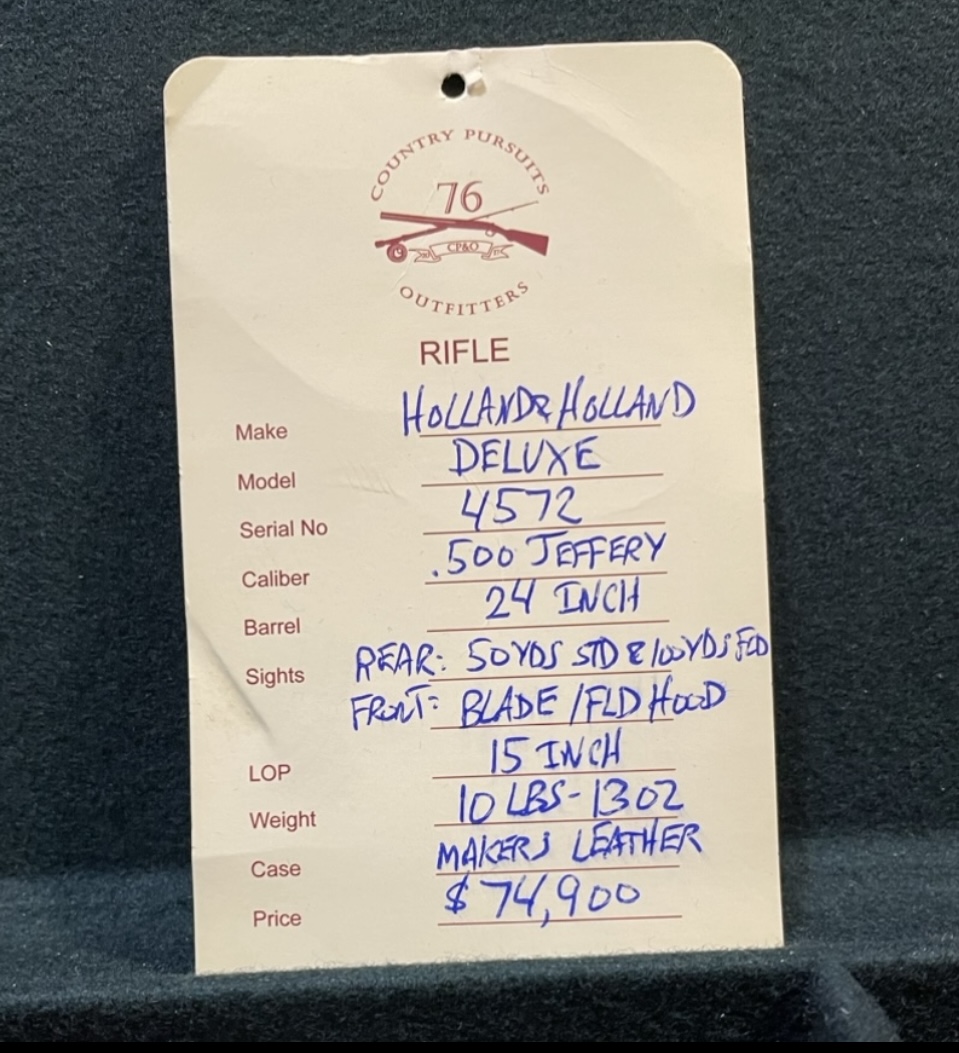 COUNTRY PURSUITS
76
CP&O
OUTFITTERS
RIFLE
Make HOLLAND & HOLLAND
Model DELUXE
Serial No 4572
Caliber .500 JEFFERY
Barrel 24 INCH
Sights REAR: 50YDS STD & 100YDS FLD
FRONT: BLADE / FLD HOOD
LOP 15 INCH
Weight 10 LBS - 13 OZ
Case MAKERS LEATHER
Price $74,900